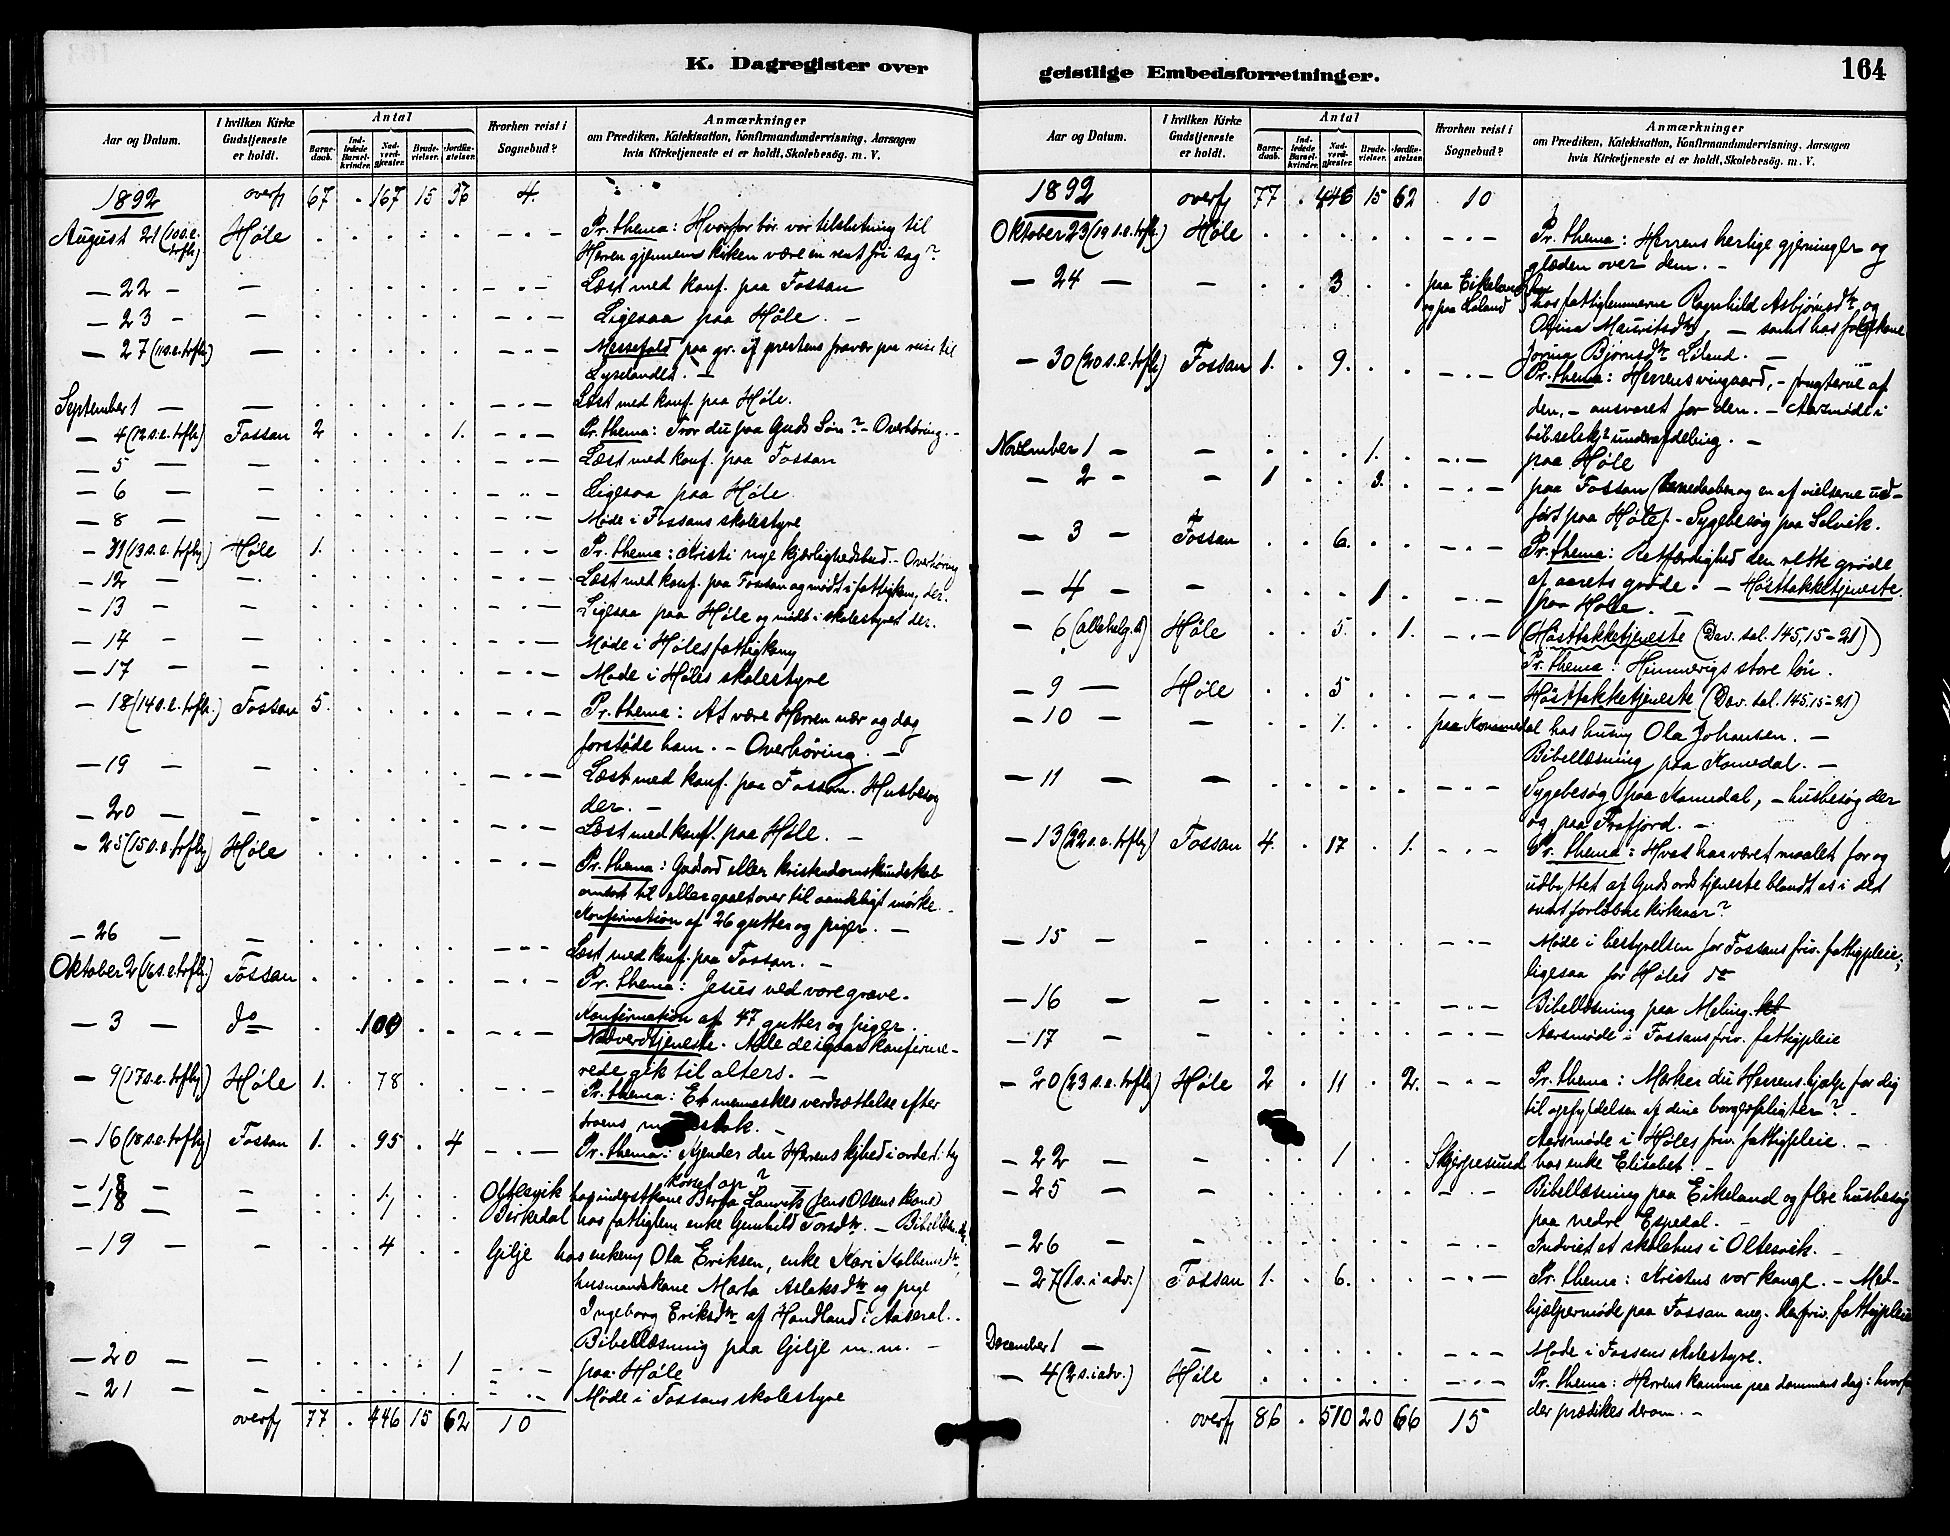 K. Dagregister over
Aar og Datum.
I hvilken Kirke Gudstjeneste er holdt.
Antal
Barnedaab.
Indledede Barselkvinder.
Nadverdgjester.
Brudevielser.
Jordfæstelser.
Hvorhen reist i Sognebud?
Anmærkninger
om Prædiken, Katekisation, Konfirmandundervisning, Aarsagen
hvis Kirketjeneste ei er holdt, Skolebesög. m. V.
1892 overf 67 . 167 15 56 4.
August 21 (10 s.e. trfh) Høle Pr. thema: Hvorfor bør vor tilslutning til
Herren gjennem kirken være en rent fri sag?
— 22 — — Læst med konf. paa Fossan
— 23 — — Ligesaa paa Høle. —
— 27 (11 s.e. trfh) — Messefald paa gr. af prestens fravær paa reise til
Lyselandet. —
September 1 — — Læst med konf. paa Høle.
— 4 (12 s.e. trfh) Fossan 2 1. Pr. thema: Tror du paa Guds Søn? — Overhøring. —
— 5 — — Læst med konf. paa Fossan
— 6 — — Ligesaa paa Høle.
— 8 — — Møde i Fossans skolestyre
— 11 (13 s.e. trfh) Høle 1. Pr. thema: Kristi nye kjærlighedsbud. — Overhøring
— 12 — — Læst med konf. paa Fossan og mødt i fattigkom. der.
— 13 — — Ligesaa paa Høle og mødt i skolestyret der.
— 14 — Møde i Høles fattigkom
— 17 — — Møde i Høles skolestyre
— 18 (14 s.e. trfh.) Fossan 5. Pr. thema: At være Herren nær og dog
forstøde ham. — Overhøring. —
— 19 — — Læst med konf. paa Fossan. Husbesøg
der. —
— 20 — — Læst med konf. paa Høle. —
— 25 (15 s.e. trfh) Høle Pr. thema: Guds ord eller kristendomskundskab
omsat til eller gaaet over til aandeligt mørke. —
Konfirmation af 26 gutter og piger. —
— 26 — — Læst med konf. paa Fossan. —
Oktober 2 (16 s.e. trfh.) Fossan Pr. thema: Jesus ved vore grave.
Konfirmation af 47 gutter og piger.
— 3 — do 100 Nadverdtjeneste. Alle de igaar konfirme-
rede gik til alters. —
— 9 (17 s.e. trfh) Høle 1. 78 Pr. thema: Et menneskes verdsættelse efter
troens maalestok. —
— 16 (18 s.e. trfh) Fossan 1. 95 4 Pr. thema: Kjender du Herrens lighed i ordet: by
korset op?
— 18 — — 1. Oltesvik hos inderstkone Berta Lauritsdr (Jens Olsens kone)
— 18 — — 1 Birkedal hos fattiglem enke Gunhild Torsdr. — Bibell.
— 19 — — 4 Gilje hos enkem Ola Eriksen, enke Kari Kolbensdr,
husmandskone Marta Aslaksdr og pige
Ingeborg Eriksdr af Handland i Aaseral.
Bibellæsning paa Gilje m. m. —
— 20 — — 1 paa Høle
— 21 — — Møde i Fossans skolestyre
overf 77 . 446 15 62 10
geistlige Embedsforretninger.
164
Aar og Datum.
I hvilken Kirke Gudstjeneste er holdt.
Antal
Barnedaab.
Indledede Barselkvinder.
Nadverdgjester.
Brudevielser.
Jordfæstelser.
Hvorhen reist i Sognebud?
Anmærkninger
om Prædiken, Katekisation, Konfirmandundervisning, Aarsagen
hvis Kirketjeneste ei er holdt, Skolebesög. m. V.
1892 overf 77 . 446 15 62 10
Oktober 23 (19 s.e. trfh.) Høle Pr. thema: Herrens herlige gjerninger og
glæden over dem. —
— 24 — — 3 paa Eikeland og paa Liland hos fattiglemmerne Ragnhild Asbjørnsdr og
Olina Mauritsdr, — samt hos folgekone
Jorina Bjørnsdr Liland. —
— 30 (20 s.e. trfh) Fossan 1. 9. Pr. thema: Herrens vingaard, — frugterne af
den, — ansvaret for den. — Aarsmøde i
bibselskjs underafdeling. —
November 1 — — 1. paa Høle
— 2 — — 1 3. paa Fossan (barnedaaben og en af vielserne ud-
ført paa Høle). — Sygebesøg paa Selvik.
— 3 — Fossan 6. Pr. thema: Retfærdighed den rette grøde
af aarets grøde. — Høsttakketjeneste.
— 4 — — 1 paa Høle. —
— 6 (allehelg. d) Høle 5. 1. (Høsttakketjeneste (Dav. sal. 145, 15-21))
Pr. thema: Himmerigs store løn.
— 9 — Høle 5 Høsttakketjeneste (Dav. sal. 145, 15-21)
— 10 — — 1. paa Kommedal hos husm Ola Johansen. —
Bibellæsning paa Komedal. —
— 11 — — Sygebesøg paa Komedal, — husbesøg der
og paa Frafjord. —
— 13 (22 s.e. trfh) Fossan 4. 17 1. Pr. thema: Hvad har været maalet for og
udbyttet af Guds ords tjeneste blandt os i det
svart forløbne kirkeaar?
— 15 — — Møde i bestyrelsen for Fossans friv. fattigpleie;
ligesaa for Høles do
— 16 — — Bibellæsning paa Meling.
— 17 — — Aarsmøde i Fossans friv. fattigpleie
— 20 (23 s.e. trfh) Høle 2 11 2. Pr. thema: Mærker du Herrens hjælp for dig
til opfyldelsen af dine borgerpligter? —
Aarsmøde i Høles friv. fattigpleie. —
— 22 — — 1 Skjørpesund hos enke Elisabet —
— 25 — — Bibellæsning paa Eikeland og flere husbesøg
paa nedre Espedal. —
— 26 — Indviet et skolehus i Oltesvik. —
— 27 (1 s. i adv.) Fossan 1. 6. Pr. thema: Kristus vor konge. — Med-
hjælpermøde paa Fossan ang. den friv. fattigpleie
December 1 — — Møde i Fossans skolestyre.
— 4 (2 s. i adv.) Høle Pr. thema: Herrens komme paa dommens dag: hvorfor
der prædikes derom. —
overf 86 . 510 20 66 15